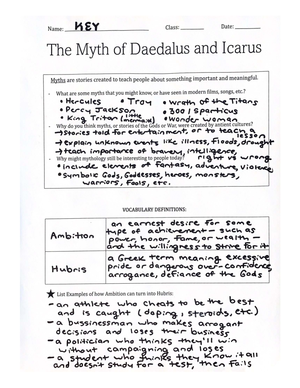 Name: KEY Class: Date:
The Myth of Daedalus and Icarus
Myths are stories created to teach people about something important and meaningful.
- What are some myths that you might know, or have seen in modern films, songs, etc.?
• Hercules • Troy • Wrath of the Titans
• Percy Jackson • 300 / Sparticus
• King Triton (Little Mermaid) • Wonder Woman
- Why do you think myths, or stories of the Gods or War, were created by ancient cultures?
- Stories told for entertainment, or to teach a lesson
- explain unknown events like illness, floods, drought
- teach importance of bravery, intelligence, right vs wrong
- Why might mythology still be interesting to people today?
• include elements of fantasy, adventure, violence
• symbolic Gods, Godesses, heroes, monsters,
warriors, fools, etc.
VOCABULARY DEFINITIONS:
Ambition
an earnest desire for some
type of achievement – such as
power, honor, fame, or wealth –
and the willingness to strive for it
Hubris
a Greek term meaning excessive
pride or dangerous over-confidence,
arrogance, defiance of the Gods
★ List Examples of how Ambition can turn into Hubris:
- an athlete who cheats to be the best
and is caught (doping, steroids, etc)
- a bussinessman who makes arrogant
decisions and loses their business
- a politician who thinks they'll win
without campaigning and loses
- a student who thinks they know it all
and doesn't study for a test, then fails